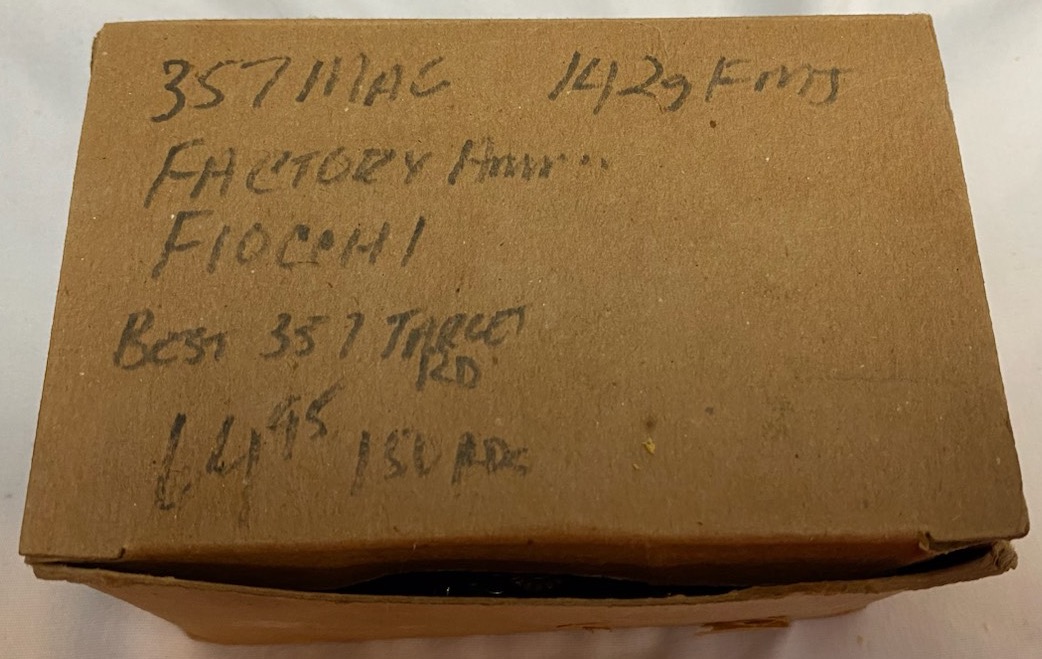 357 MAG 142g FMJ
FACTORY Amm
FIOCCHI
BEST 357 TARGET
RD
14 95 150 RDS